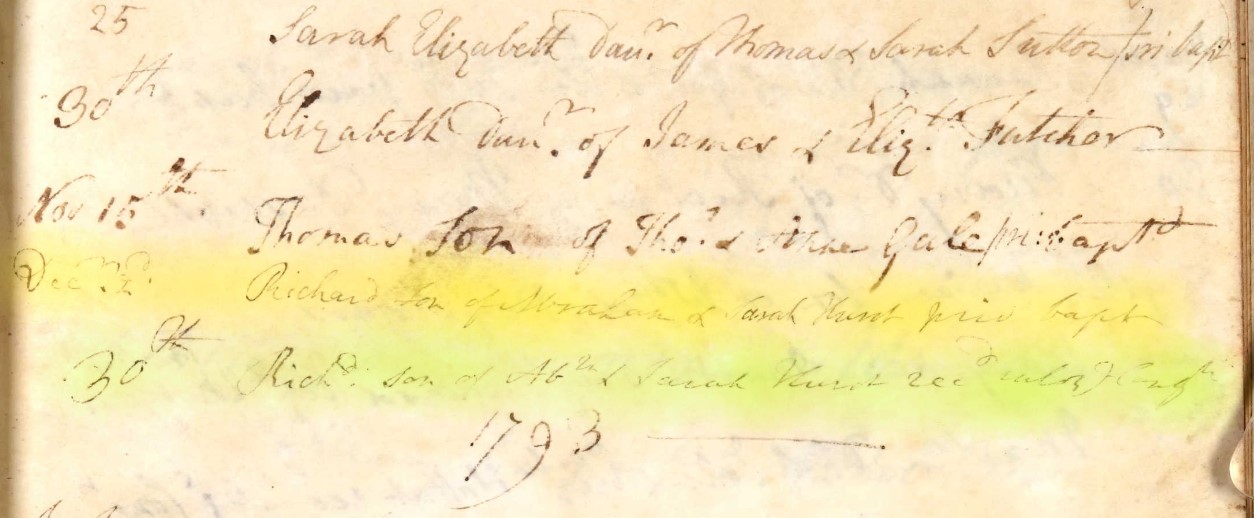 25 Sarah Elizabeth Daur. of Thomas & Sarah Sutton pri bapt
30th Elizabeth Daur. of James & Elizth. Futcher
Nov 15th Thomas Son of Thos. & Anne Gale priv baptd
Decr. 2d. Richard son of Abraham & Sarah Hurst priv bapt
30th Richd. son of Abm & Sarah Hurst recd into ye Congn
1793